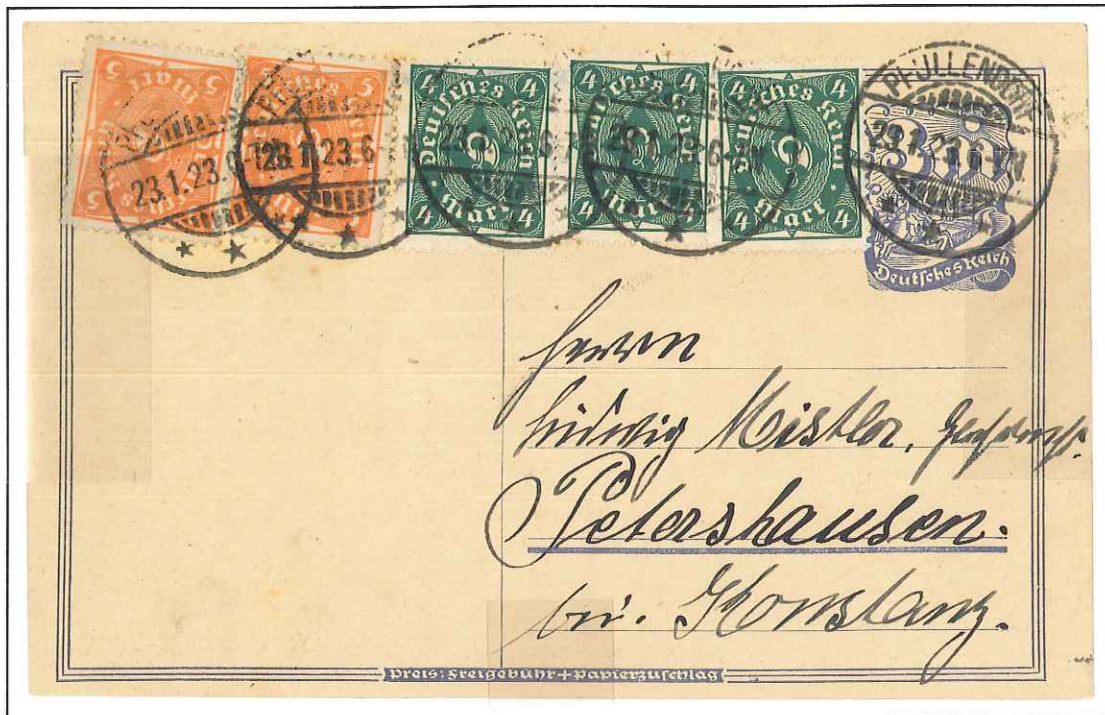 5
Mark
5
5
Deutsches Reich
5
4 4
Deutsches Reich
4 Mark 4
4 4
Deutsches Reich
4 Mark 4
4 4
Deutsches Reich
4 Mark 4
PFULLENDORF
23.1.23.
23.1.23.6-
Deutsches Reich
Herrn
Ludwig Mistler,
Petershausen.
bei. Konstanz.
Preis: Freigebühr + Papierzuschlag